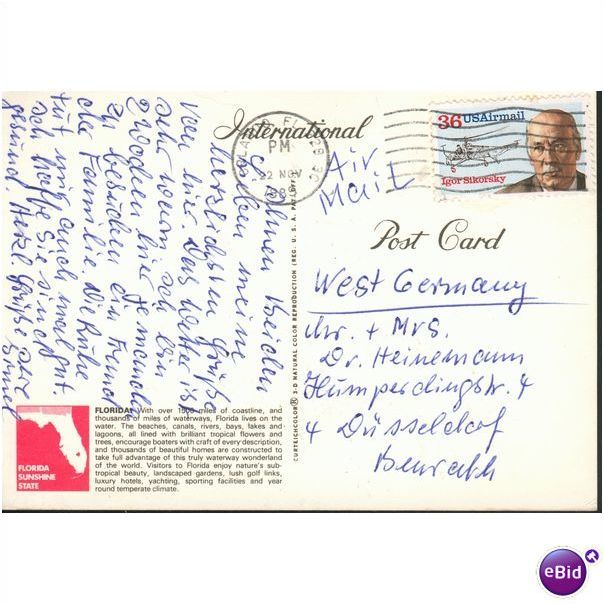 International
Post Card
36 USAirmail
Igor Sikorsky
PM
22 NOV
Air
Mail
West Germany
Mr. + Mrs.
Dr. Heinemann
Humperdingstr. 4
4 Düsseldorf
Benrath
Ihnen beiden
meine
herzlichsten Grüße
von hier. Das Wetter ist
sehr warm ich bin
2 Wochen hier Jemanden
zu besuchen ein Freund
der Familie. Die Ruhe
tut mir auch mal gut.
Ich hoffe Sie sind
gesund. Herzl. Grüße
CURTEICHCOLOR® 3-D NATURAL COLOR REPRODUCTION (REG. U.S.A.
FLORIDA! With over 1900 miles of coastline, and
thousands of miles of waterways, Florida lives on the
water. The beaches, canals, rivers, bays, lakes and
lagoons, all lined with brilliant tropical flowers and
trees, encourage boaters with craft of every description,
and thousands of beautiful homes are constructed to
take full advantage of this truly waterway wonderland
of the world. Visitors to Florida enjoy nature's sub-
tropical beauty, landscaped gardens, lush golf links,
luxury hotels, yachting, sporting facilities and year
round temperate climate.
FLORIDA
SUNSHINE
STATE
eBid